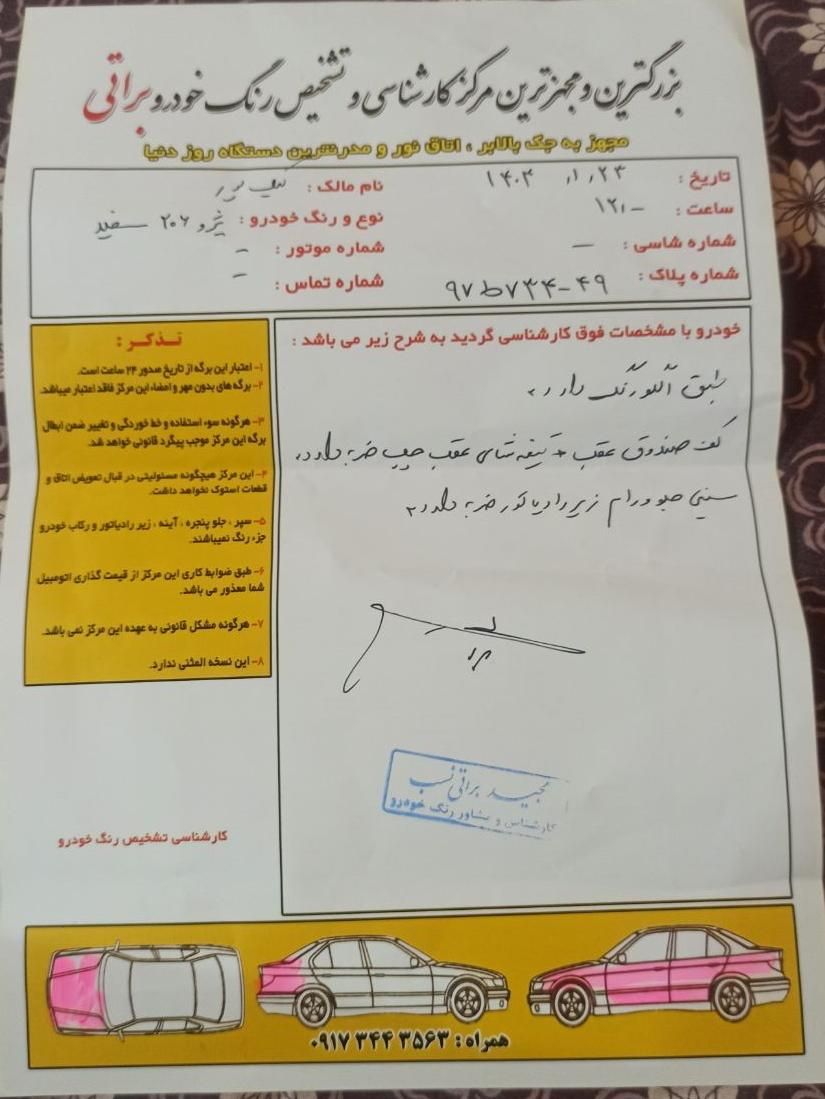 بزرگترین و مجهزترین مرکز کارشناسی و تشخیص رنگ خودرو براتی
مجهز به جک بالابر ، اتاق نور و مدرنترین دستگاه روز دنیا
تاریخ : ۱۴۰۳ ٫۱ ٫۲۳
نام مالک :
ساعت : ۱۲٫-
نوع و رنگ خودرو : پژو ۲۰۶ سفید
شماره شاسی : -
شماره موتور : -
شماره پلاک : ۹۷ ط ۷۳۴-۴۹
شماره تماس : -
خودرو با مشخصات فوق کارشناسی گردید به شرح زیر می باشد :
طبق آلگو رنگ دارد.
کف صندوق عقب + تیغه شاسی عقب چپ ضربه دارد.
سینی جلو و رام زیر رادیاتور ضربه دارد.
مجید براتی نسب
کارشناس و مشاور رنگ خودرو
تذکر :
۱- اعتبار این برگه از تاریخ صدور ۲۴ ساعت است.
۲- برگه های بدون مهر و امضاء این مرکز فاقد اعتبار میباشد.
۳- هرگونه سوء استفاده و خط خوردگی و تغییر ضمن ابطال
برگه این مرکز موجب پیگرد قانونی خواهد شد.
۴- این مرکز هیچگونه مسئولیتی در قبال تعویض اتاق و
قطعات استوک نخواهد داشت.
۵- سپر ، جلو پنجره ، آینه ، زیر رادیاتور و رکاب خودرو
جزء رنگ نمیباشند.
۶- طبق ضوابط کاری این مرکز از قیمت گذاری اتومبیل
شما معذور می باشد.
۷- هرگونه مشکل قانونی به عهده این مرکز نمی باشد.
۸- این نسخه المثنی ندارد.
کارشناسی تشخیص رنگ خودرو
همراه : ۰۹۱۷ ۳۴۴ ۳۵۶۳